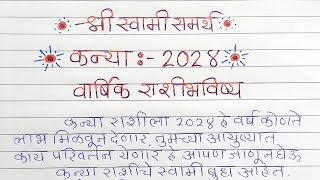 श्री स्वामी समर्थ
कन्या :- 2024
वार्षिक राशीभविष्य
कन्या राशीला 2024 हे वर्ष कोणते
लाभ मिळवून देणार, तुमच्या आयुष्यात
काय परिवर्तन येणार हे आपण जाणून घेऊ
कन्या राशीचे स्वामी बुध आहेत.